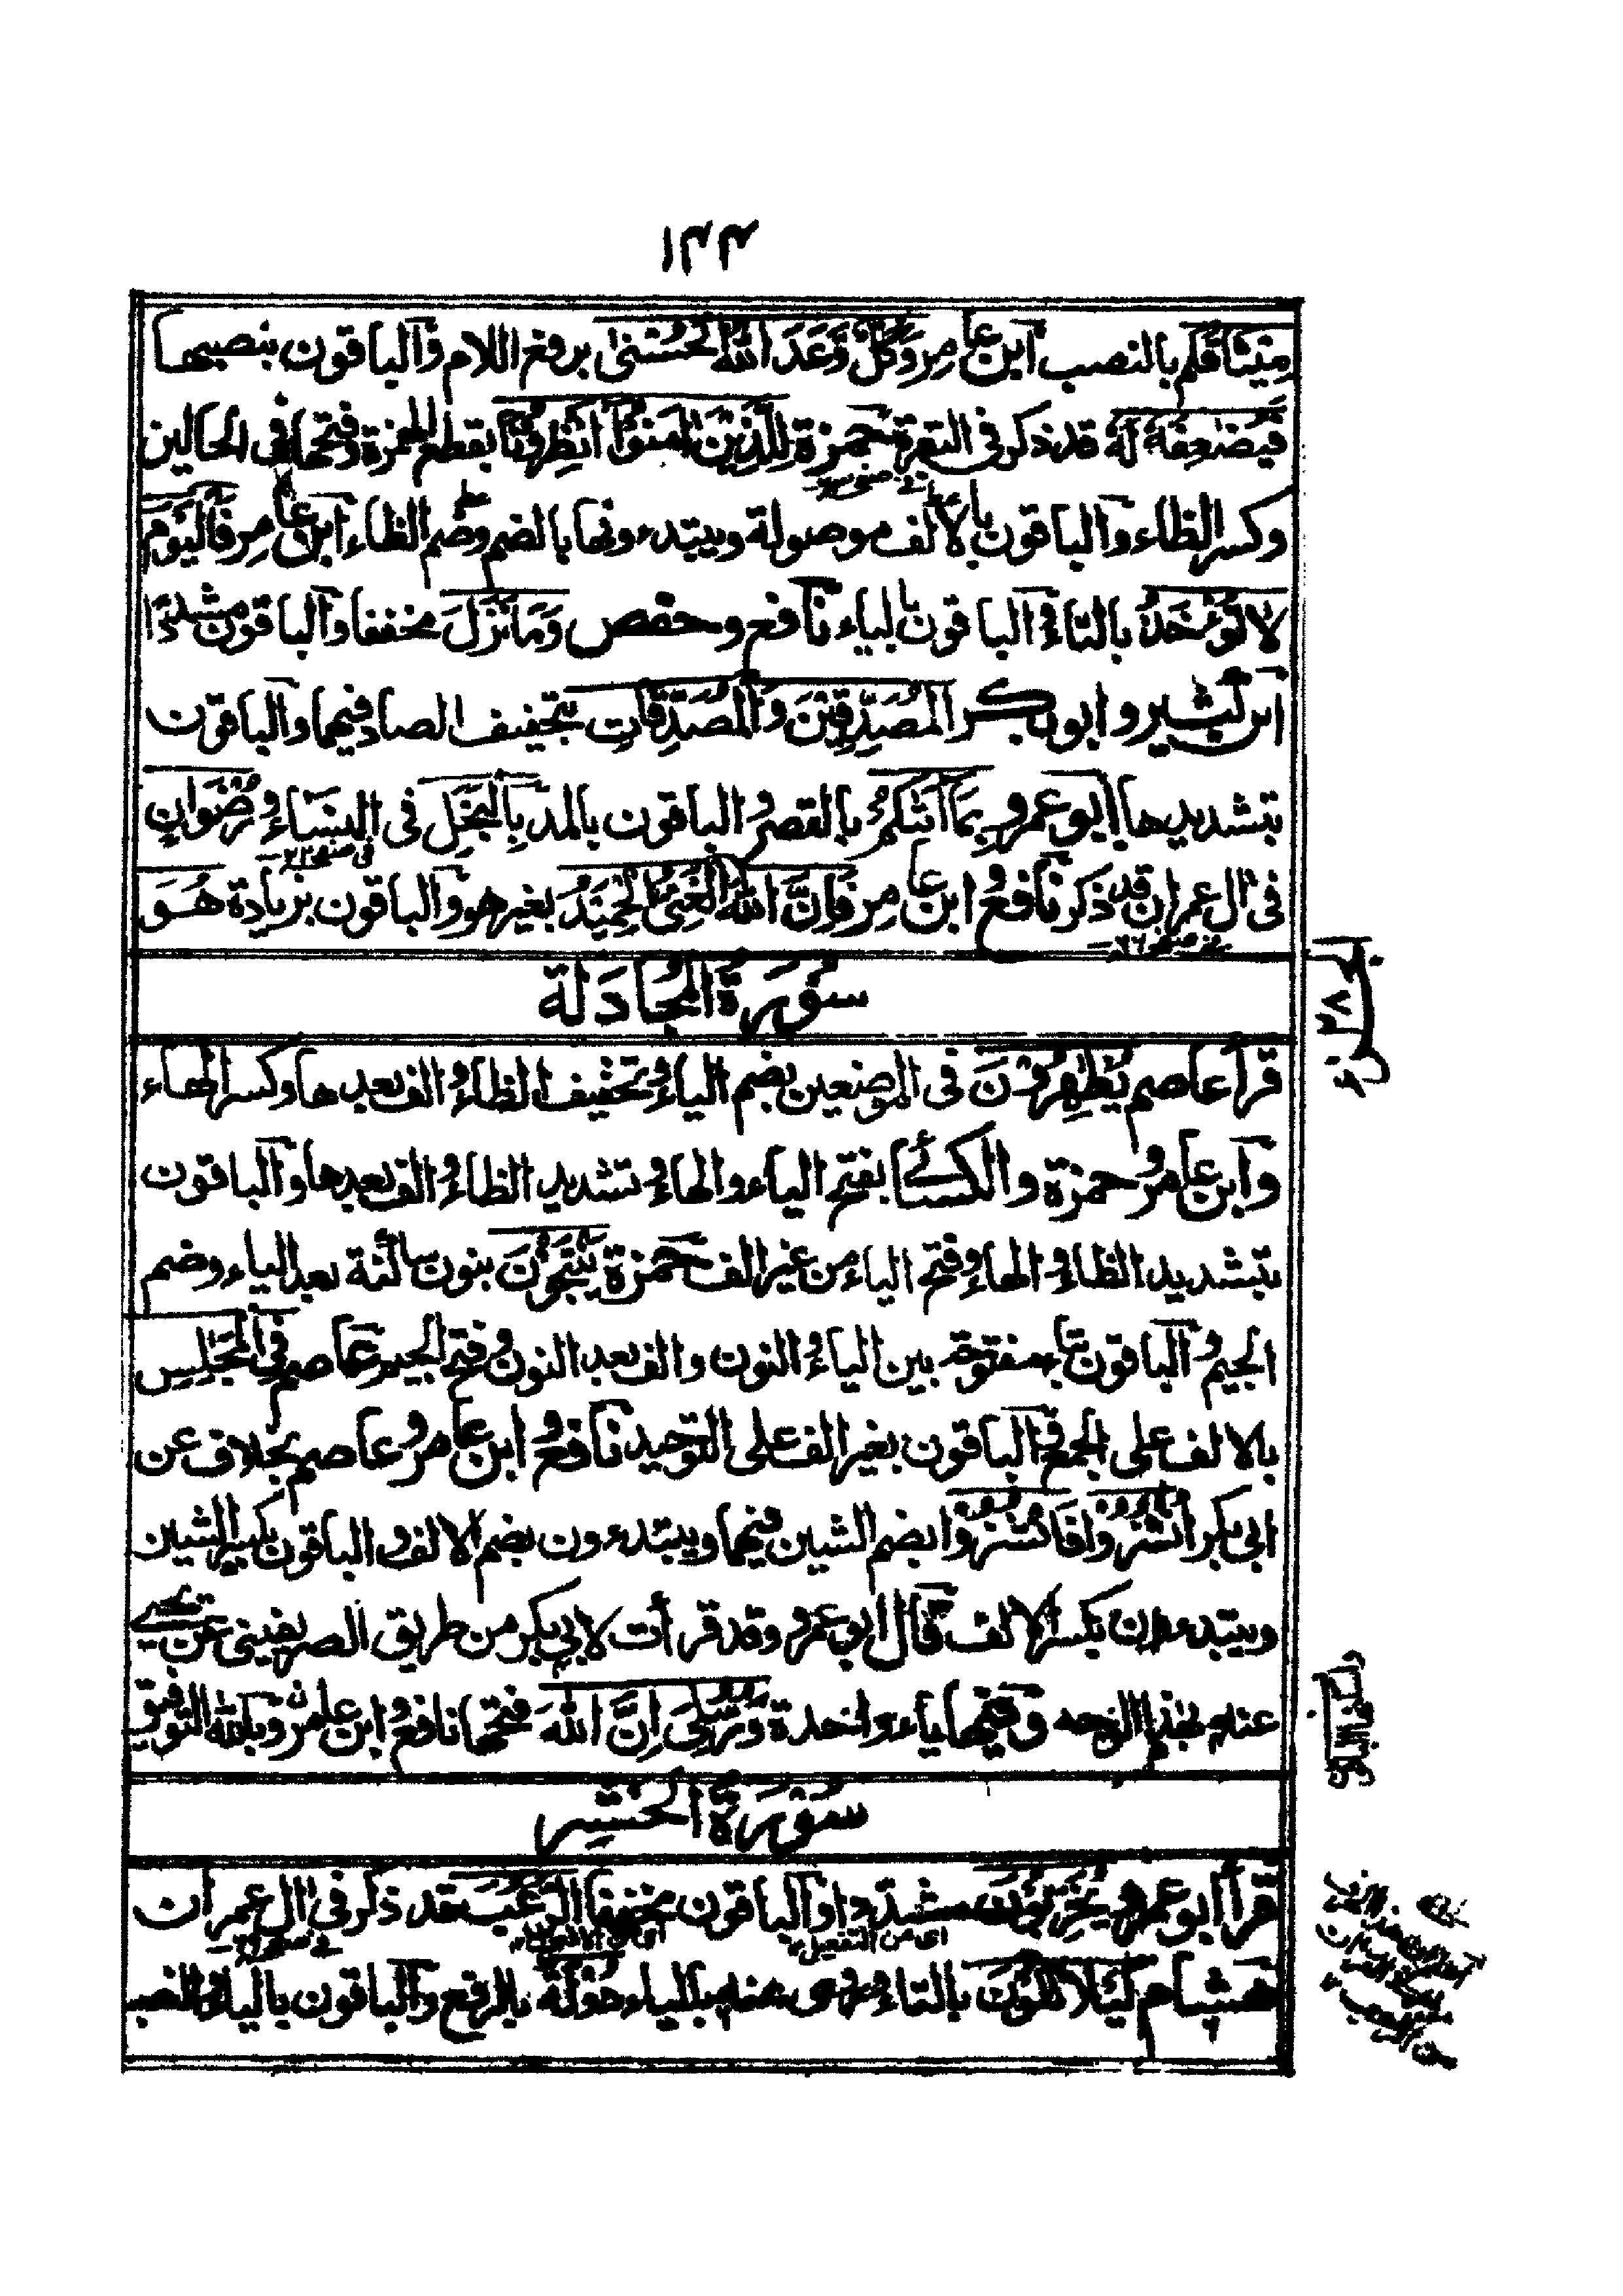 ١٣٣
مِيثَاقَكُم بالنصب ابن عامر وَكُلٌّ وَعَدَ اللهُ الْحُسْنىٰ برفع اللام والباقون بنصبها
فَيُضٰعِفَهُ لَهُ قد ذكر في البقرة حمزة لِلَّذِينَ اٰمَنُوا اَنْظِرُونَا بقطع الهمزة وفتحها في الحالين
وكسر الظاء والباقون بالالف موصولة ويبتدءونها بالضم وضم الظاء ابن عامر فَالْيَوْمَ
لَا تُؤْخَذُ بالتاء والباقون بالياء نافع وحفص وَمَا نَزَلَ مخففا والباقون مشددا
ابن كثير وابو بكر الْمُصَدِّقِيْنَ وَالْمُصَدِّقَاتِ بتخفيف الصاد فيهما والباقون
بتشديدها ابو عمرو بِمَا اَتٰكُمْ بالقصر والباقون بالمد بِالْبُخْلِ في النساء وَرِضْوَانٍ
في صفحه
في اٰل عمران قد ذكر نافع وابن عامر فَاِنَّ اللهَ الْغَنِيُّ الْحَمِيْدُ بغير هو والباقون بزيادة هُوَ
سُوْرَةُ الْمُجَادَلَة
قرأ عاصم يُظٰهِرُوْنَ في الموضعين بضم الياء وتخفيف الظاء والف بعدها وكسر الهاء
وابن عامر وحمزة والكسائے بفتح الياء والهاء وتشديد الظاء والف بعدها والباقون
بتشديد الظاء والهاء وفتح الياء من غير الف حمزة يَنْتَجُوْنَ بنون ساكنة بعد الياء وضم
الجيم والباقون بتاء مفتوحة بين الياء والنون والف بعد النون وفتح الجيم عاصم فِي الْمَجٰلِسِ
بالالف على الجمع والباقون بغير الف على التوحيد نافع وابن عامر وعاصم بخلاف عن
ابي بكر انْشُزُوْا فَانْشُزُوْا بضم الشين فيهما ويبتدءون بضم الالف والباقون بكسر الشين
ويبتدءون بكسر الالف قال ابو عمرو وقد قرأت لابي بكر من طريق الصريفيني عن يحيے
عنه بهذا الوجه وفيها ياء واحدة وَرُسُلِيَ اِنَّ اللهَ فتحها نافع وابن عامر وبالله التوفيق
سُوْرَةُ الْحَشْرِ
قرأ ابو عمرو يُخَرِّبُوْنَ مشددا والباقون مخففا الرُّعْبَ قد ذكر في اٰل عمران
اى من التفعيل
هشام لِئَلَّا تَكُوْنَ بالتاء وروى عنه بالياء دُوْلَةٌ بالرفع والباقون بالياء والنصب